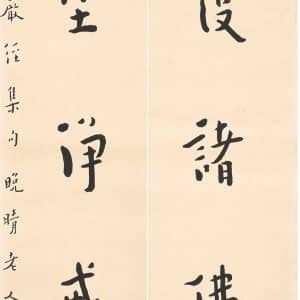 諸佛
淨戒
嚴經集句晚晴老人